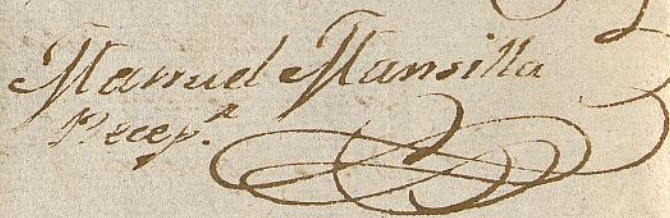 Manuel Mansilla
Recep.r